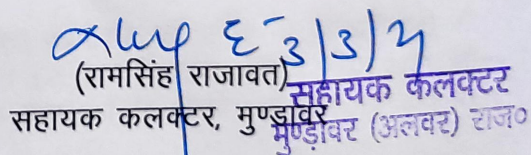 3/3/21
(रामसिंह राजावत)
सहायक कलक्टर, मुण्डावर
सहायक कलक्टर
मुण्ड़ावर (अलवर) राज०